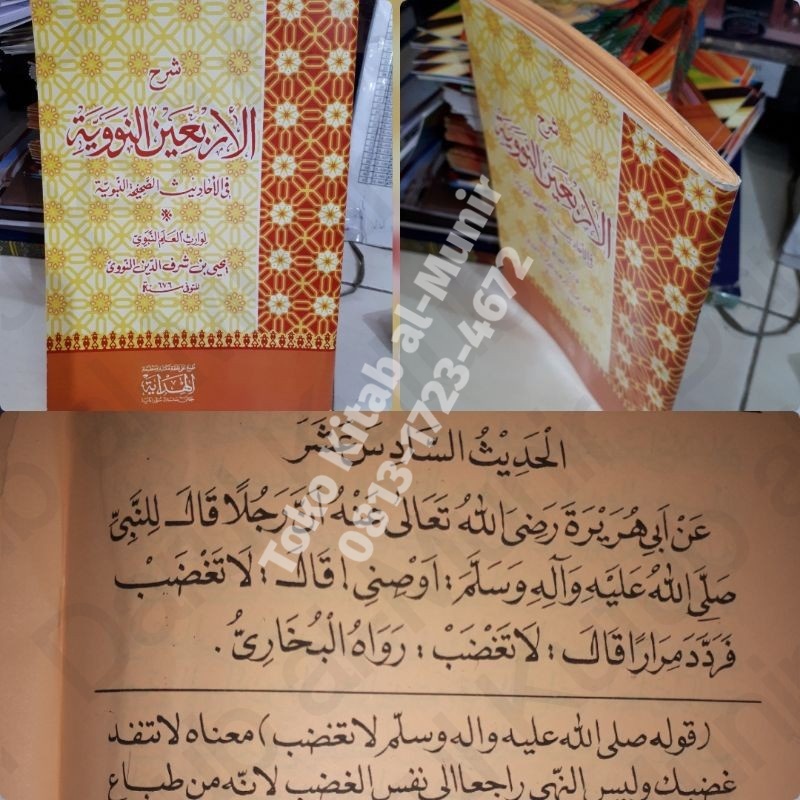 شرح
الأربعين النووية
في الأحاديث الصحيحة النبوية
لوارث العلم النبوي
يحيى بن شرف الدين النووى
المتوفى سنة ٦٧٦
الهداية
شرح
الأربعين النووية
Toko Kitab al-Munir
0813-7723-4672
الْحَدِيْثُ السَّادِسَ عَشَرَ
عَنْ اَبِى هُرَيْرَةَ رَضِىَ اللهُ تَعَالَى عَنْهُ اَنَّ رَجُلًا قَالَ لِلنَّبِىِّ
صَلَّى اللهُ عَلَيْهِ وَآلِهِ وَسَلَّمَ : اَوْصِنِى ! قَالَ : لَا تَغْضَبْ
فَرَدَّدَ مِرَارًا قَالَ : لَا تَغْضَبْ : رَوَاهُ الْبُخَارِىُّ .
(قوله صلى الله عليه واله وسلم لا تغضب) معناه لا تنفد
غضبك وليس النهى راجعا الى نفس الغضب لانه من طباع